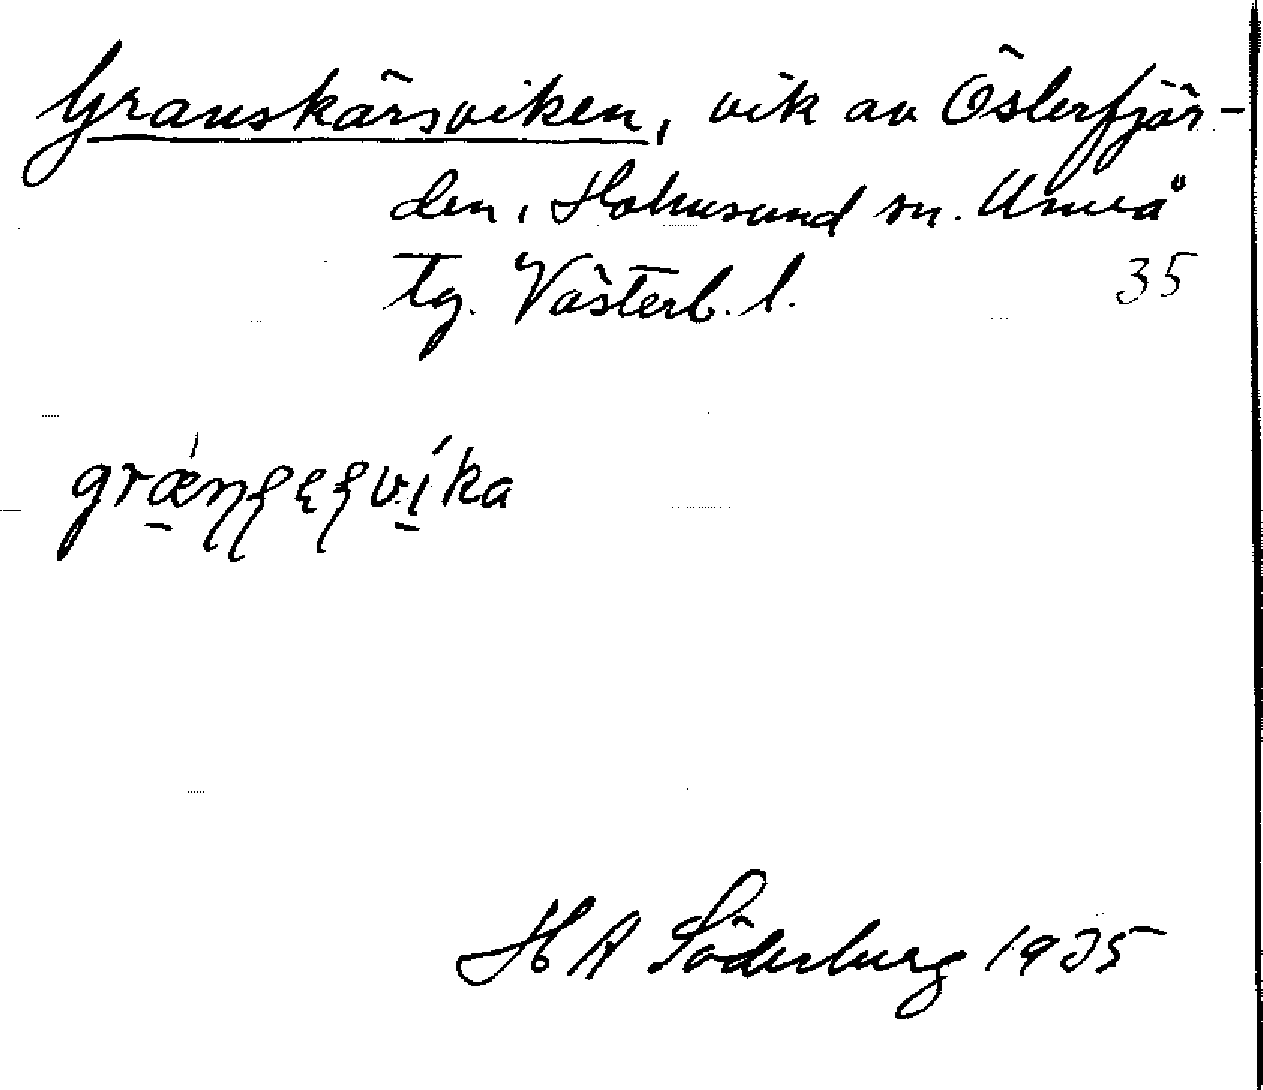 Granskärsviken, vik av Österfjär-
den, Holmsund sn. Umeå
tg. Västerb. l. 35
H A Söderberg 1935